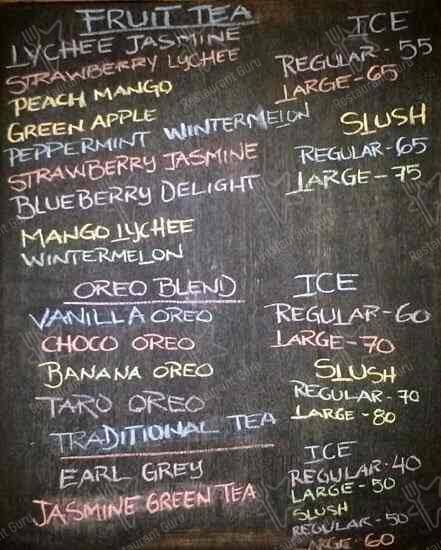 FRUIT TEA
LYCHEE JASMINE
STRAWBERRY LYCHEE
PEACH MANGO
GREEN APPLE
PEPPERMINT WINTERMELON
STRAWBERRY JASMINE
BLUEBERRY DELIGHT
MANGO LYCHEE
WINTERMELON
ICE
REGULAR - 55
LARGE - 65
SLUSH
REGULAR - 65
LARGE - 75
OREO BLEND
VANILLA OREO
CHOCO OREO
BANANA OREO
TARO OREO
ICE
REGULAR - 60
LARGE - 70
SLUSH
REGULAR - 70
LARGE - 80
TRADITIONAL TEA
EARL GREY
JASMINE GREEN TEA
ICE
REGULAR - 40
LARGE - 50
SLUSH
REGULAR - 50
LARGE - 60